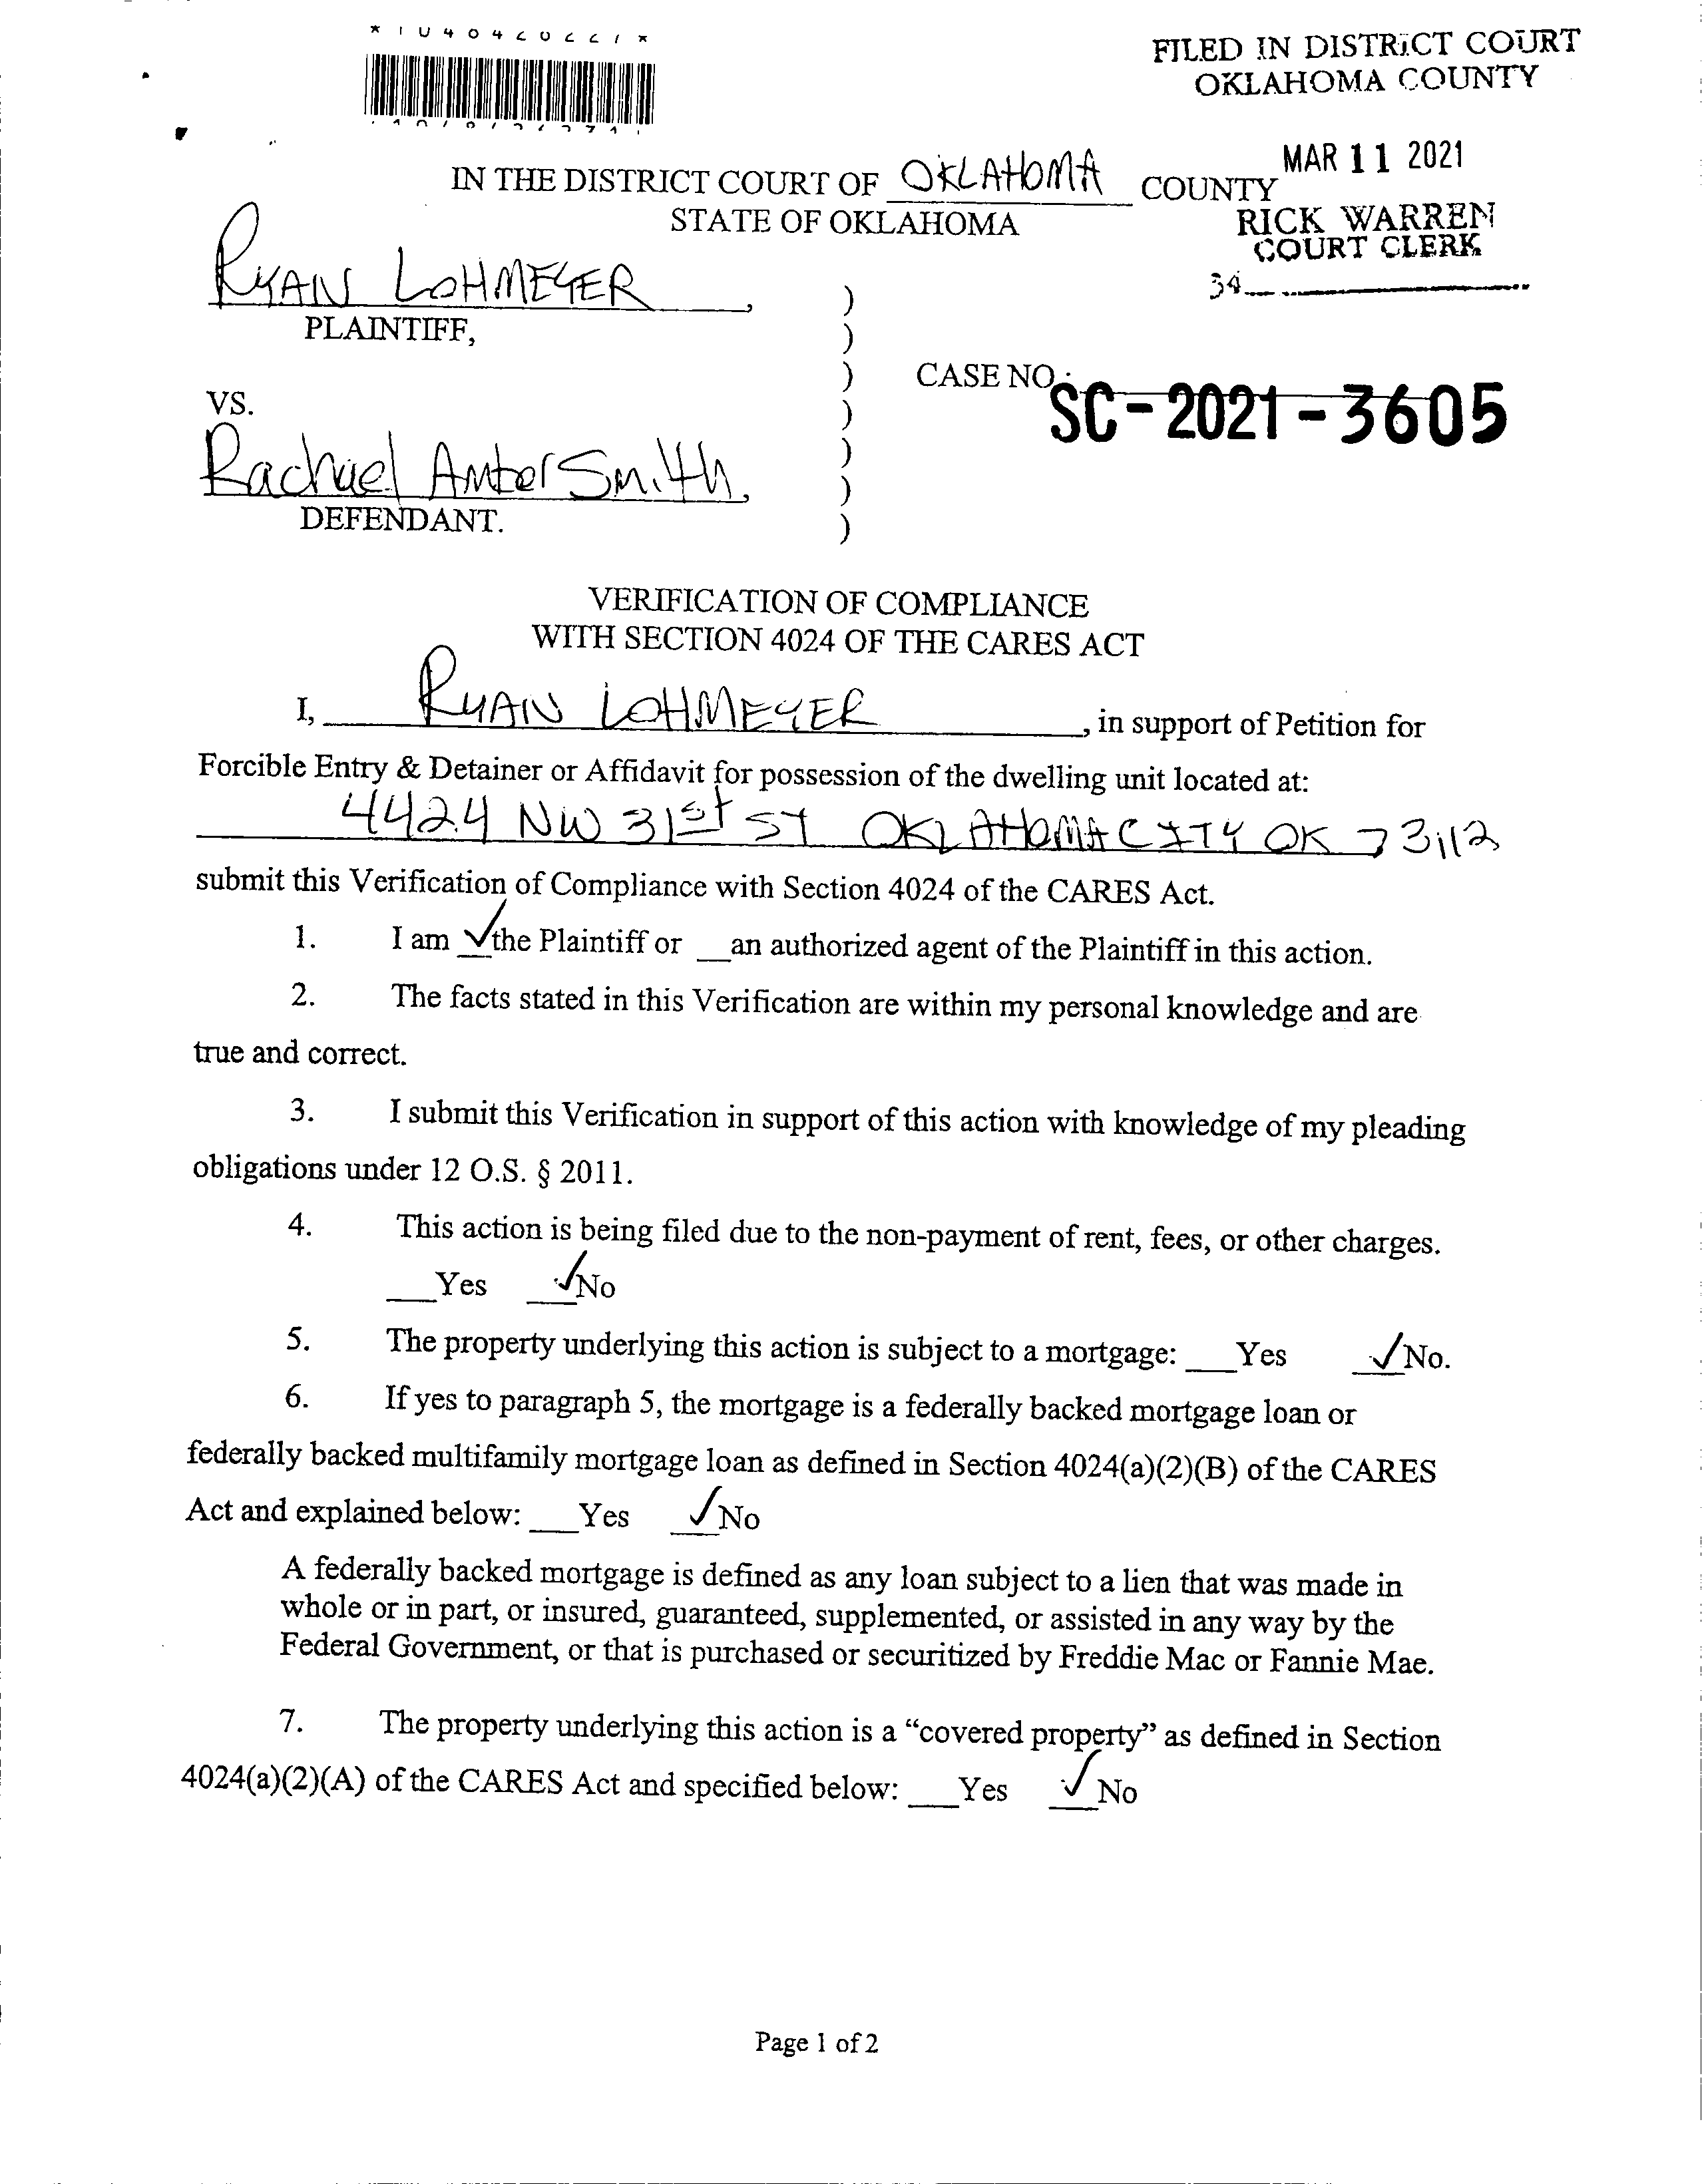 FILED IN DISTRICT COURT
OKLAHOMA COUNTY
MAR 11 2021
RICK WARREN
COURT CLERK
34
IN THE DISTRICT COURT OF OKLAHOMA COUNTY
STATE OF OKLAHOMA
RYAN LOHMEYER,
PLAINTIFF,
VS.
Rachael Amber Smith,
DEFENDANT.
)
)
)
)
)
)
)
CASE NO.: SC-2021-3605
VERIFICATION OF COMPLIANCE
WITH SECTION 4024 OF THE CARES ACT
I, RYAN LOHMEYER, in support of Petition for
Forcible Entry & Detainer or Affidavit for possession of the dwelling unit located at:
4424 NW 31st ST OKLAHOMA CITY OK 73112
submit this Verification of Compliance with Section 4024 of the CARES Act.
1. I am ✓the Plaintiff or __an authorized agent of the Plaintiff in this action.
2. The facts stated in this Verification are within my personal knowledge and are
true and correct.
3. I submit this Verification in support of this action with knowledge of my pleading
obligations under 12 O.S. § 2011.
4. This action is being filed due to the non-payment of rent, fees, or other charges.
___Yes ✓No
5. The property underlying this action is subject to a mortgage: ___Yes ✓No.
6. If yes to paragraph 5, the mortgage is a federally backed mortgage loan or
federally backed multifamily mortgage loan as defined in Section 4024(a)(2)(B) of the CARES
Act and explained below: ___Yes ✓No
A federally backed mortgage is defined as any loan subject to a lien that was made in
whole or in part, or insured, guaranteed, supplemented, or assisted in any way by the
Federal Government, or that is purchased or securitized by Freddie Mac or Fannie Mae.
7. The property underlying this action is a “covered property” as defined in Section
4024(a)(2)(A) of the CARES Act and specified below: ___Yes ✓No
Page 1 of 2